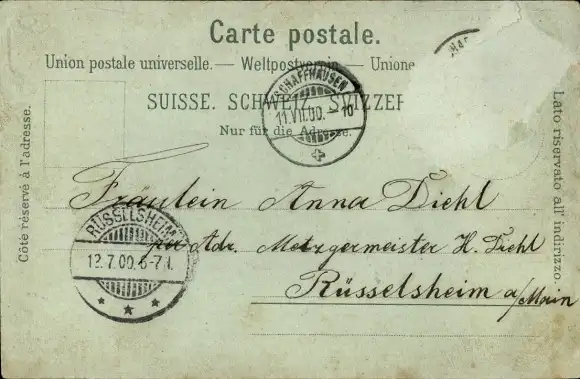 Carte postale.
Union postale universelle. — Weltpostverein — Unione
SUISSE. SCHWEIZ. SVIZZER
Nur für die Adresse.
Côté réservé à l'adresse.
Lato riservato all' indirizzo
SCHAFFHAUSEN
11.VII.00. – 10
Fräulein Anna Diehl
pr Adr. Metzgermeister H. Diehl
Rüsselsheim a/Main
RÜSSELSHEIM
12.7.00. 6-7